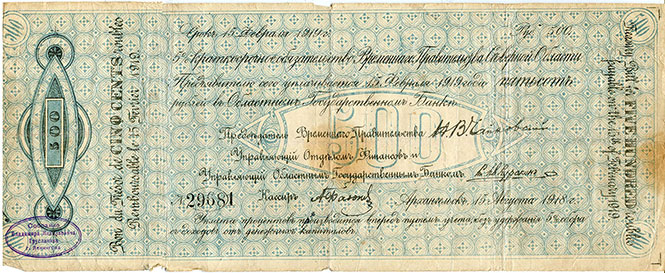 Срокъ 15 Февраля 1919 г. Руб. 500.
5% Краткосрочное обязательство Временнаго Правительства Сѣверной Области
Предъявителю сего уплачивается 15 Февраля 1919 года пятьсотъ
рублей въ Областномъ Государственномъ Банкѣ
Председатель Временнаго Правительства
Управляющій Отдѣломъ Финансовъ и
Управляющій Областнымъ Государственнымъ Банкомъ
№ 29681 Кассиръ Архангельскъ, 15 Августа 1918 г.
Уплата процентовъ производится впередъ путемъ учета, безъ удержанія 5% сбора
съ доходовъ отъ денежныхъ капиталовъ.
500
500
Bon du Trésor de CINQ CENTS roubles
Remboursable le 15 Février 1919
Treasury Bill for FIVE HUNDRED roubles
payable on the 15 of February 1919
Собраніе
Владимира